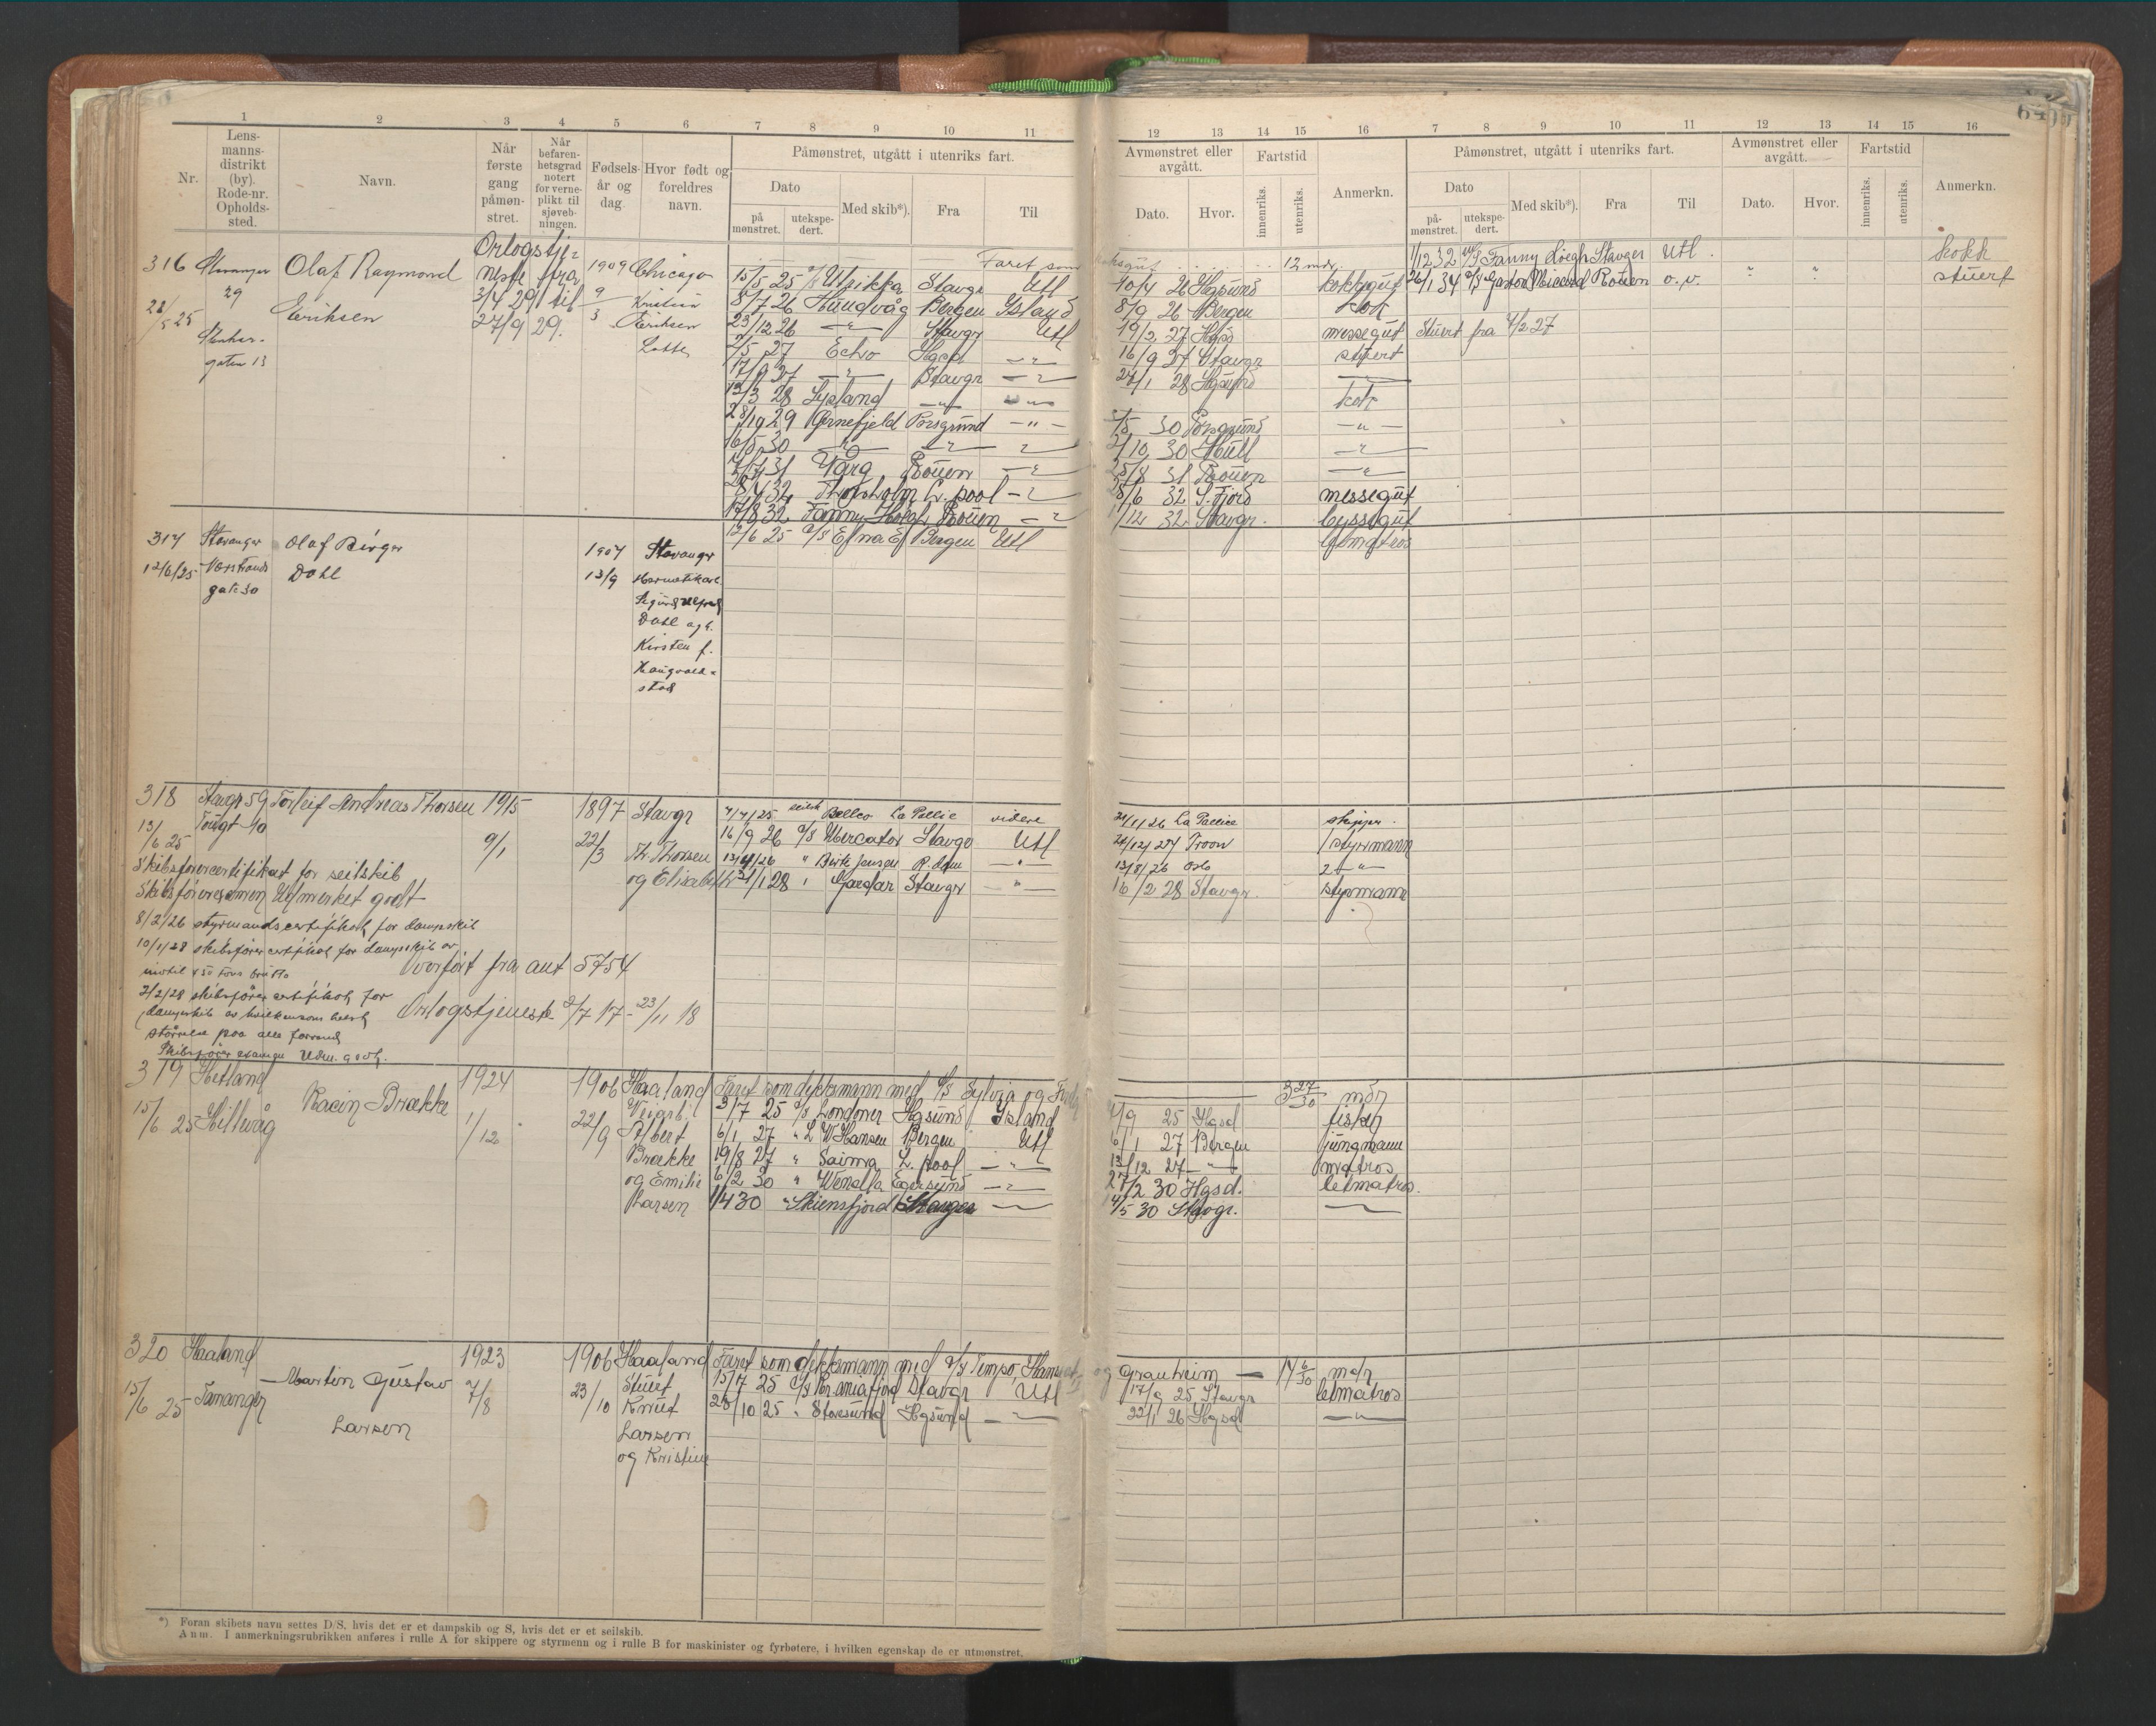 64
1 2 3 4 5 6 7 8 9 10 11 12 13 14 15 16 7 8 9 10 11 12 13 14 15 16
Nr.
Lens-
manns-
distrikt
(by).
Rode-nr.
Opholds-
sted.
Navn.
Når
første
gang
påmøn-
stret.
Når
befaren-
hetsgrad
notert
for verne-
plikt til
sjøveb-
ningen.
Fødsels-
år og
dag.
Hvor født og
foreldres
navn.
Påmønstret, utgått i utenriks fart.
Dato
på
mønstret.
utekspe-
dert.
Med skib*).
Fra
Til
Avmønstret eller
avgått.
Dato.
Hvor.
Fartstid
innenriks.
utenriks.
Anmerkn.
Påmønstret, utgått i utenriks fart.
Dato
på-
mønstret.
utekspe-
dert.
Med skib*).
Fra
Til
Avmønstret eller
avgått.
Dato.
Hvor.
Fartstid
innenriks.
utenriks.
Anmerkn.
316 Stavanger 29
28/5 25
gaten 13
Olaf Raymond
Eriksen
Orlogstje-
neste fra
3/4 29 til
27/9 29.
1909 Chicago
9/3 Kristian
Eriksen
Lotte
Faret som
12 mdr.
15/5 25 D/S Utsikka Stavgr Utl
10/4 26 Hgsund kokkgut
8/7 26 Hundvåg Bergen Island 8/9 26 Bergen Kok
23/12 26 —"— Stavgr Utl 19/2 27 Hgsd messegut Stuert fra 4/2 27
2/5 27 Echo Hgsd —"— 16/9 27 Stavgr stuert
17/9 27 —"— Stavgr —"— 27/1 28 Hgsund
12/3 28 Lysland —"— kok
28/10 29 Ørnefjeld Porsgrund —"— 1/5 30 Porsgrund —"—
16/5 30 —"— —"— —"— 2/10 30 Hull —"—
31 Varg Rouen —"— 25/8 31 Rouen —"—
32 Thorsholm L. pool —"— 28/6 32 S. Fjord messegut
17/8 32 Fanny Rouen —"— 1/12 32 Stavgr. byssegut
1/12 32 M/S Fanny Stavger Utl. kokk
26/1 34 D/S Gaston Micard Rouen o.v. " " stuert
317 Stavanger Olaf Birger 1907 Stavanger
12/6/25
gate 30 Dahl 13/9
Dahl og h.
Kirsten f.
Haugvald-
stad
12/6 25 D/S Edna E Bergen Utl letmatros
318 Stavgr 59 Torleif Andreas Thorsen 1915 1897 Stavgr
13/6 25
9/1 22/3 Th. Thorsen
og Elisabeth
7/7/25 seilsk Bellco La Pallice videre La Pallice skipper.
16/9 26 D/S Mercator Stavgr Utl 24/12/27 Troon 1 styrmann
" Birk Jensen R.dam —"— 13/8/26 Oslo 2 —"—
21/1 28 " Gardar Stavgr —"— 16/2 28 Stavgr. styrmann
Skibsførercertifikat for seilskib
Skibsføreresamen Udmerket godt
8/2/26 styrmandscertifikat for dampskib
10/1/28 skibsførercertifikat for dampskib av
indtil 450 tons brutto
2/2/28 skibsfører certifikat for
dampskib av hvilkensomhelst
størrelse paa alle farvand
Skibsfører examen Udm. godt.
Overført fra ant 5754
Orlogstjeneste 2/7 17 - 23/11 18
319 Hetland Racin Brække 1924 1906 Haaland
15/6 25 Hillevåg 1/12 22/9
Albert
Brække
og Emilie
Larsen
Faret som dekksmann med D/S Sylvia og
3 27/30 mdr
3/7 25 D/S Londoner Hgsund Island 25 Hgsd fisker
6/1 27 " L W Hansen Bergen Utl 6/1 27 Bergen jungmann
19/8 27 " Saima L. pool —"— 13/12 27 —"— matros
6/2 30 " Wenella Egersund —"— 27/2 30 Hgsd. letmatros.
1/4 30 " Skiensfjord Stavger —"— 14/5 30 Stavgr. —"—
320 Haaland 1923 1906 Haaland
15/6 25 Tananger Martin Gustav 7/8 23/10 Stuert
Larsen Knut
Larsen
og Kristine
Faret som dekksmann med D/S Tempo, og Granheim — 14 6/30 mdr
15/7 25 D/S Kraniafjord Stavgr Utl 17/9 25 Stavgr letmatros
28/10 25 " Storesund Hgsund —"— 22/1 26 Hgsd —"—
*) Foran skibets navn settes D/S, hvis det er et dampskib og S, hvis det er et seilskib.
Anm. I anmerkningsrubrikken anføres i rulle A for skippere og styrmenn og i rulle B for maskinister og fyrbøtere, i hvilken egenskap de er utmønstret.